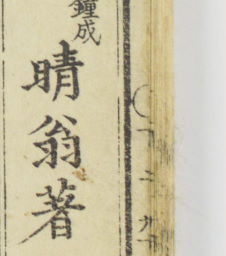 鐘成
晴翁著